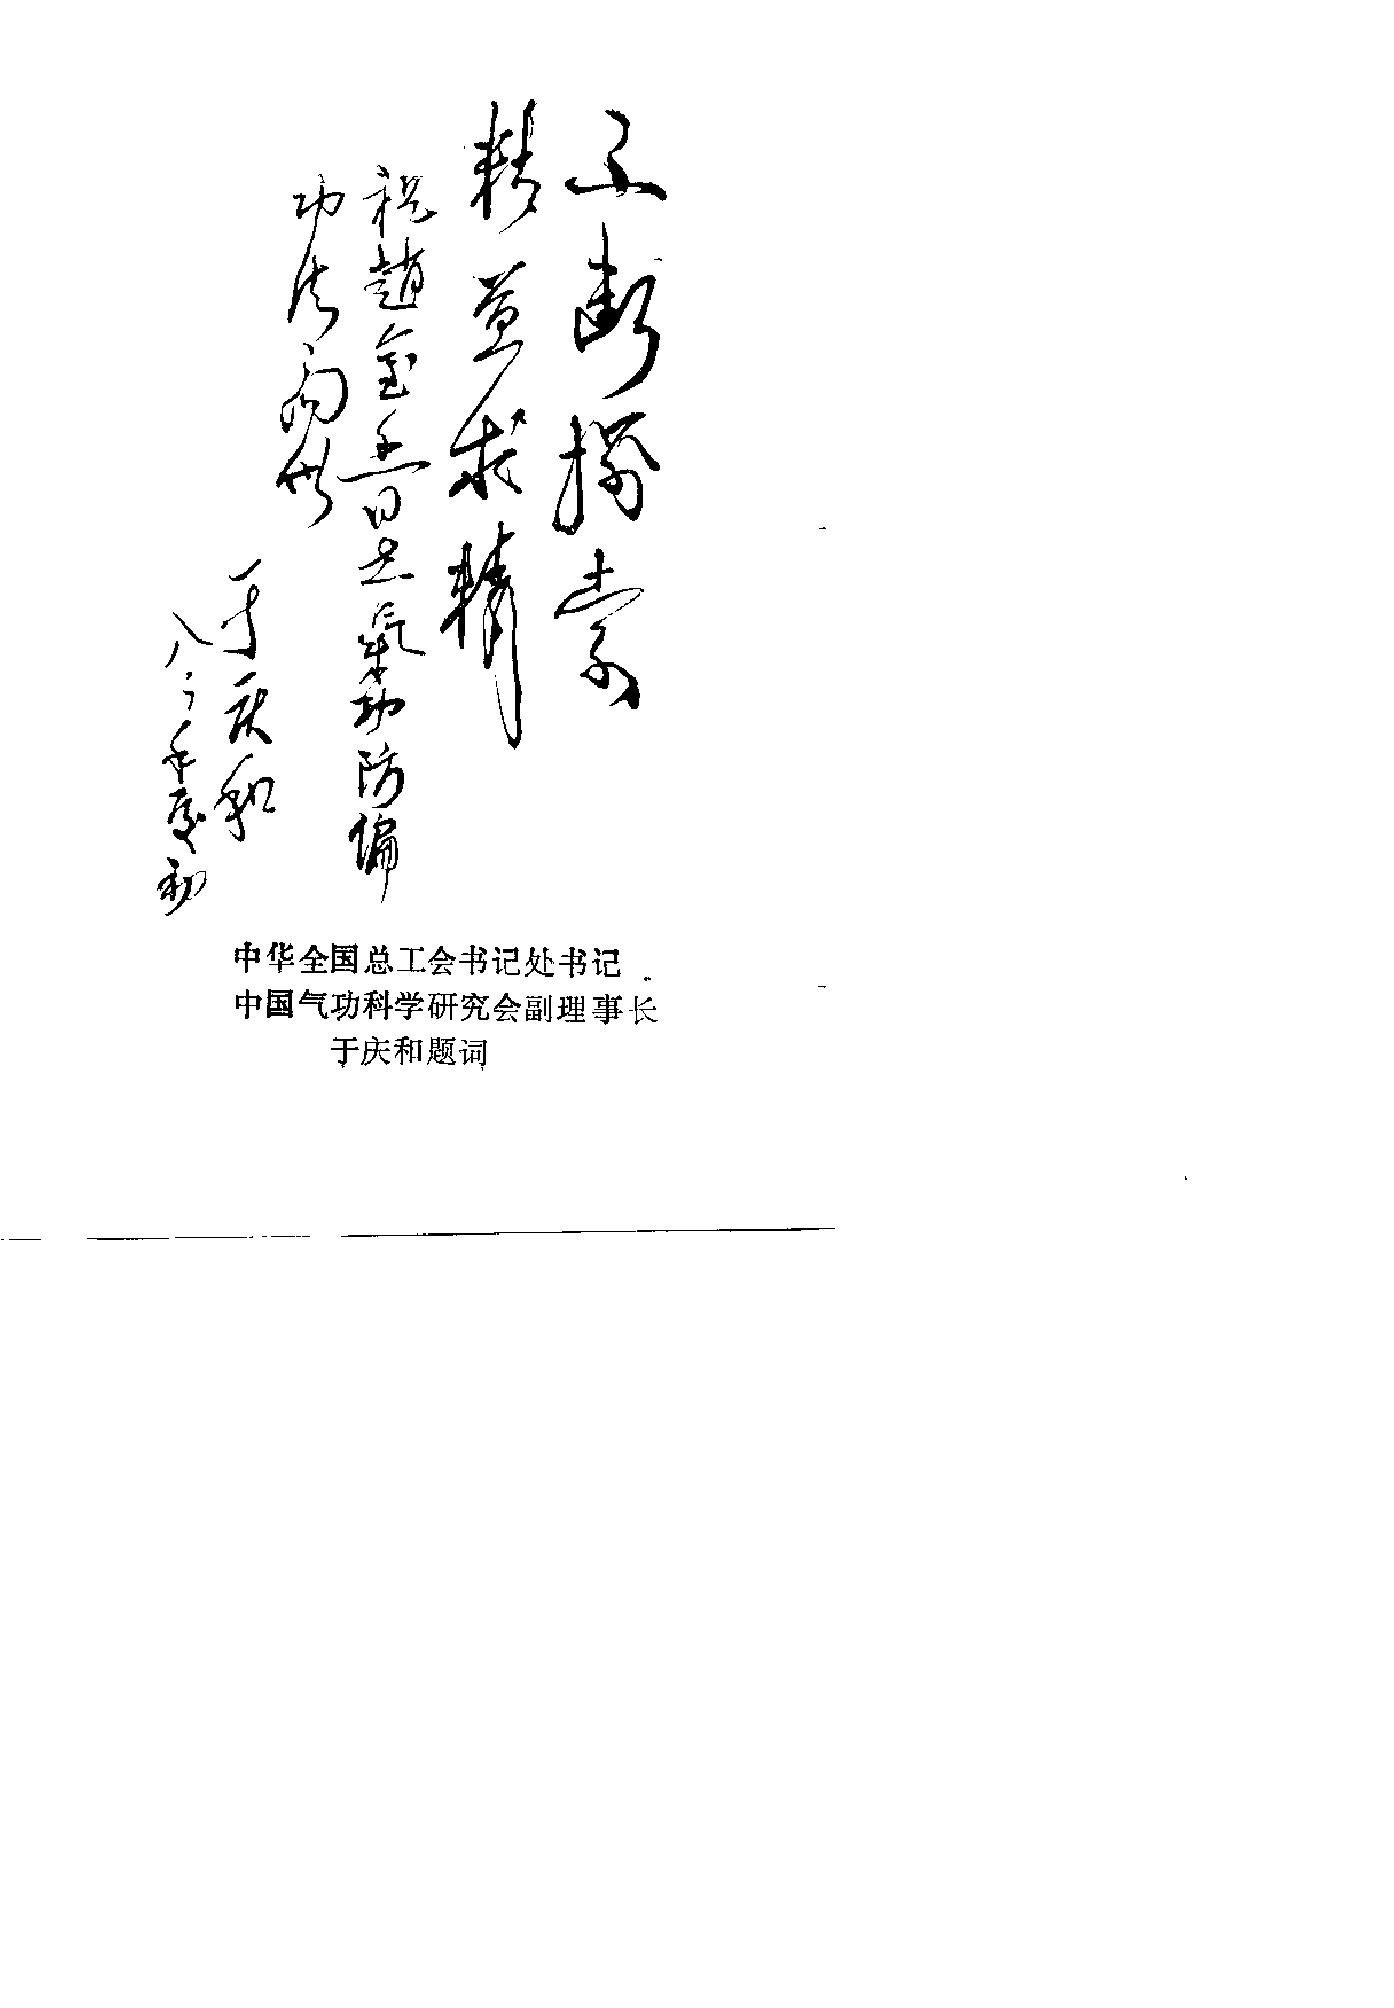 不断探索
精益求精
祝赵金香同志气功防偏
功法问世
于庆和
八八年夏初
中华全国总工会书记处书记
中国气功科学研究会副理事长
于庆和题词